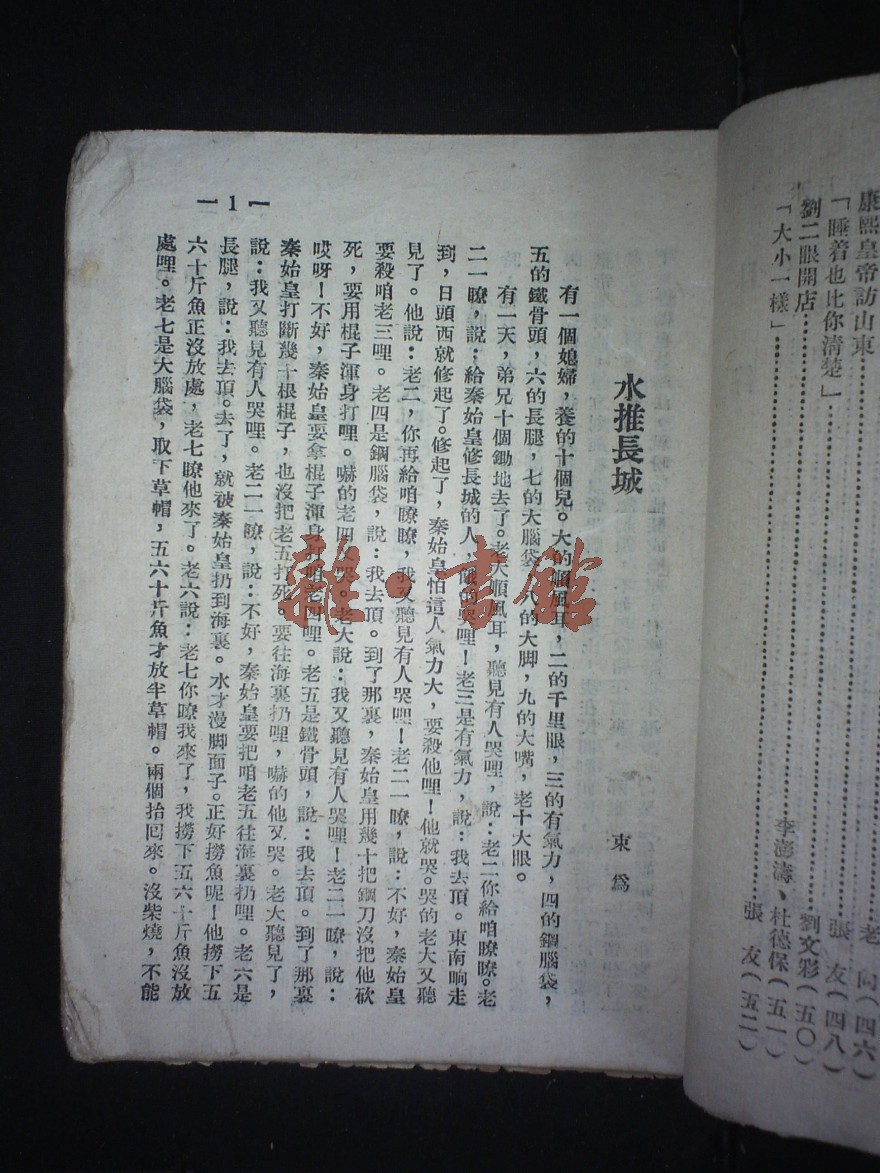 康熙皇帝訪山東………老 向(四六)
「睡着也比你清楚」………張 友(四八)
劉二眼開店………劉文彩(五〇)
李澎濤、杜德保(五一)
「大小一樣」………張 友(五二)
水推長城
東 爲
有一個媳婦，養的十個兒。大的順風耳，二的千里眼，三的有氣力，四的鋼腦袋，
五的鐵骨頭，六的長腿，七的大腦袋，八的大脚，九的大嘴，老十大眼。
有一天，弟兄十個鋤地去了。老大順風耳，聽見有人哭哩，說：老二你給咱瞭瞭。老
二一瞭，說：給秦始皇修長城的人，餓的哭哩！老三是有氣力，說：我去頂。東南晌走
到，日頭西就修起了。修起了，秦始皇怕這人氣力大，要殺他哩！他就哭。哭的老大又聽
見了。他說：老二，你再給咱瞭瞭，我又聽見有人哭哩！老二一瞭，說：不好，秦始皇
要殺咱老三哩。老四是鋼腦袋，說：我去頂。到了那裏，秦始皇用幾十把鋼刀沒把他砍
死，要用棍子渾身打哩。嚇的老四又哭。老大說：我又聽見有人哭哩！老二一瞭，說：
哎呀！不好，秦始皇要拿棍子渾身打咱老四哩。老五是鐵骨頭，說：我去頂。到了那裏
秦始皇打斷幾十根棍子，也沒把老五打死。要往海裏扔哩，嚇的他又哭。老大聽見了，
說：我又聽見有人哭哩。老二一瞭，說：不好，秦始皇要把咱老五往海裏扔哩。老六是
長腿，說：我去頂。去了，就被秦始皇扔到海裏。水才漫脚面子。正好撈魚呢！他撈下五
六十斤魚正沒放處，老七瞭他來了。老六說：老七你瞭我來了，我撈下五六十斤魚沒放
處哩。老七是大腦袋，取下草帽，五六十斤魚才放半草帽。兩個抬回來。沒柴燒，不能
1
雜·書館